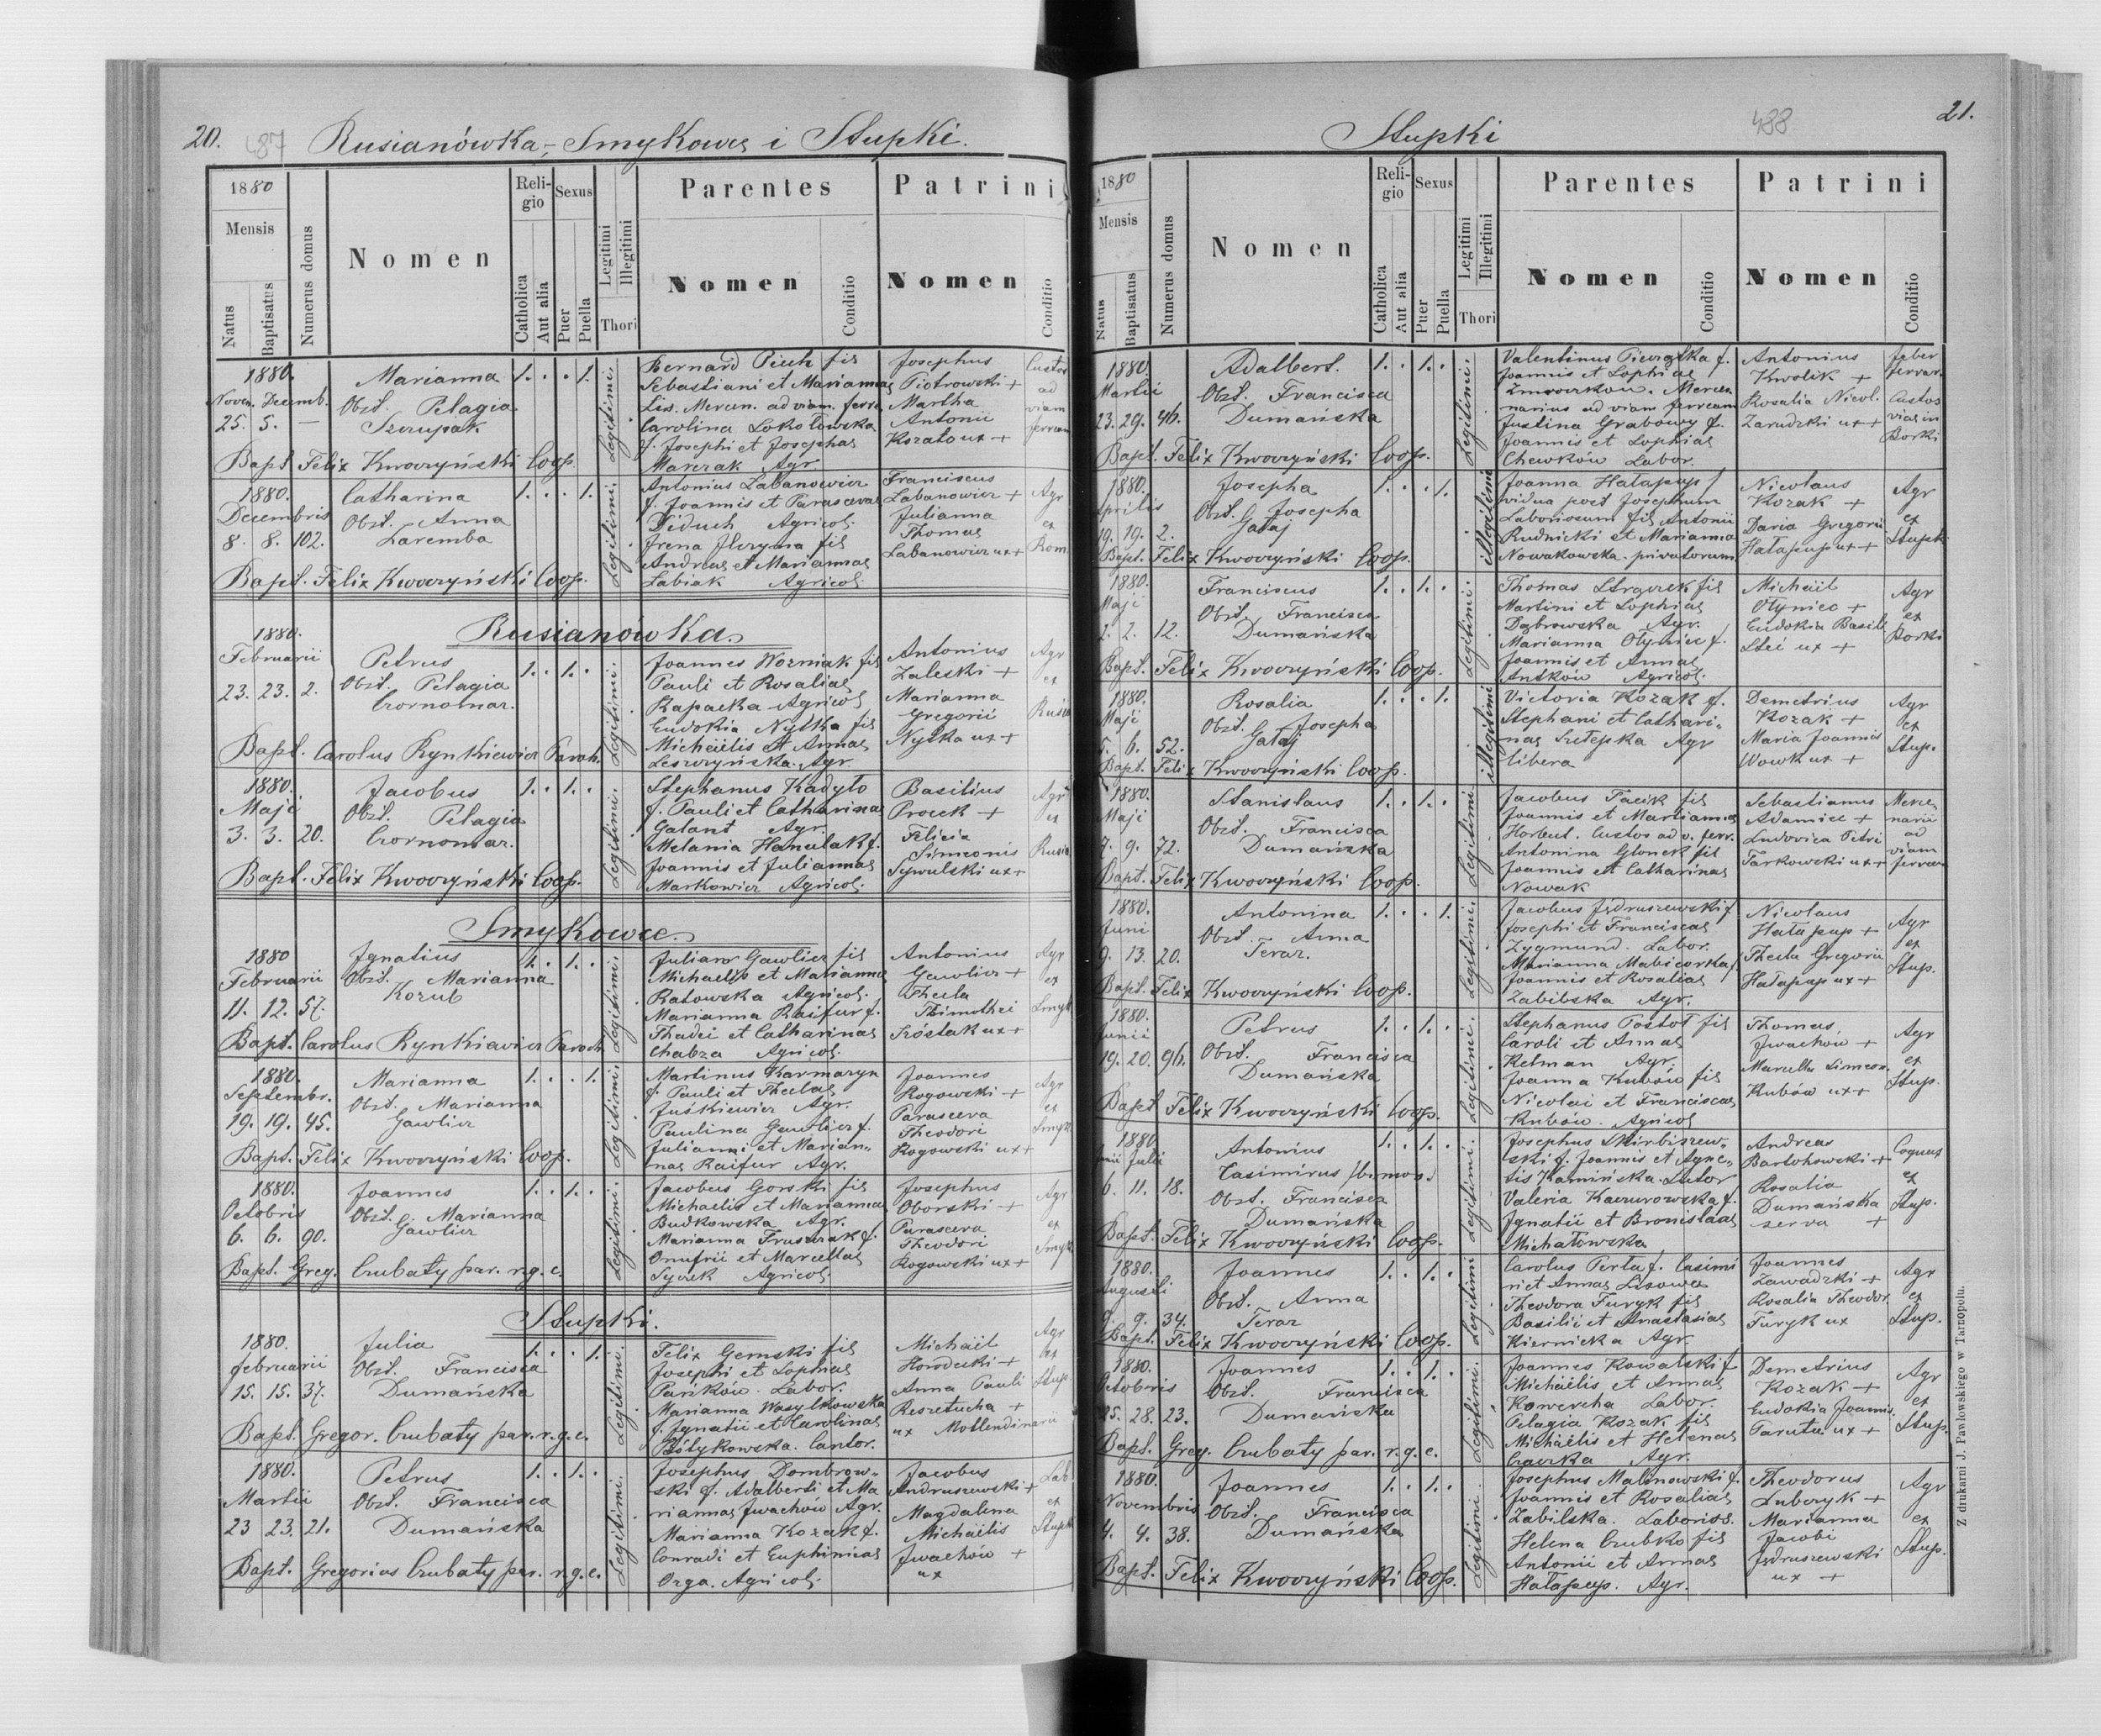 20. 487 Rusianówka, Smykowce i Stupki.
1880
Mensis
Natus
Baptisatus
Numerus domus
Nomen
Religio
Catholica
Aut alia
Sexus
Puer
Puella
Legitimi
Illegitimi
Thori
Parentes
Nomen
Conditio
Patrini
Nomen
Conditio
1880.
Novem. Decemb.
25. 5. —
Marianna
Obst. Pelagia
Szczupak
1. . . 1.
Legitimi.
Bernard Piech fil
Sebastiani et Mariannae
Lis. Mercen. ad viam ferre
Carolina Sokołowska
f. Josephi et Josephae
Marczak Agr.
Josephus
Piotrowski +
Martha
Antonii
Kozak ux +
Custos
ad
viam
ferream
Bapt. Felix Kwoczyński Coop.
1880.
Decembris
8. 8. 102.
Catharina
Obst. Anna
Zaremba
1. . . 1.
Legitimi.
Antonius Labanowicz
f. Joannis et Parascevae
Diduch Agricol.
Irena
Andreae et Mariannae
Labiak Agricol.
Franciscus
Labanowicz +
Julianna
Thomae
Labanowicz ux +
Agr
ex
Rom.
Bapt. Felix Kwoczyński Coop.
Rusianówka.
1880.
Februarii
23. 23. 2.
Petrus
Obst. Pelagia
Czornomaz.
1. . 1. .
Legitimi.
Joannes Wozniak fil
Pauli et Rosaliae
Kapacka Agricol
Eudokia Nytka fil
Michaëlis et Annae
Leszczyńska. Agr.
Antonius
Zaleski +
Marianna
Gregorii
Nytka ux +
Agr
ex
Rusia
Bapt. Carolus Rynkiewicz Paroh.
1880.
Maji
3. 3. 20.
Jacobus
Obst. Pelagia
Czornomaz.
1. . 1. .
Legitimi.
Stephanus Kadyło
f. Pauli et Catharinae
Galant Agr.
Melania Hanulak f.
Joannis et Juliannae
Markowicz Agricol.
Basilius
Procek +
Felicia
Simeonis
Sywulski ux +
Agr
ex
Rusia
Bapt. Felix Kwoczyński Coop.
Smykowce.
1880
Februarii
11. 12. 57.
Ignatius
Obst. Marianna
Kozub
1. . 1. .
Legitimi.
Julian Gawlicz fil
Michaelis et Mariannae
Ratowska Agricol.
Marianna Raifur f.
Thadei et Catharinae
Chabza Agricol.
Antonius
Gawlicz +
Thecla
Thimothei
Szóstak ux +
Agr
ex
Smyk
Bapt. Carolus Rynkiewicz Paroh.
1880.
Septembr.
19. 19. 45.
Marianna
Obst. Marianna
Gawlicz
1. . . 1.
Legitimi.
Martinus Karmazyn
f. Pauli et Theclae
Juśkiewicz Agr.
Paulina Gawlicz f.
Julianni et Marian-
nae Raifur Agr.
Joannes
Rogowski +
Parasceva
Theodori
Rogowski ux +
Agr
ex
Smyk
Bapt. Felix Kwoczyński Coop.
1880.
Octobris
6. 6. 90.
Joannes
Obst. Marianna
Gawlicz
1. . 1. .
Legitimi.
Jacobus Gorski fil
Michaelis et Mariannae
Budkowska Agr.
Marianna Fruszczak f.
Onufrii et Marcellae
Sycek Agricol.
Josephus
Oborski +
Parasceva
Theodori
Rogowski ux +
Agr
ex
Smyk
Bapt. Greg. Czubaty par. r.g.c.
Stupki.
1880.
februarii
15. 15. 37.
Julia
Obst. Francisca
Dumańska
1. . . 1.
Legitimi.
Felix Gemski fil
Josephi et Sophiae
Pańków. Labor.
Marianna Wasylkowska
f. Ignatii et Carolinae
Cantor.
Michaël
Horodecki +
Anna Pauli
Reszetucha +
ux Mollendinarii
Agr
ex
Stup.
Bapt. Gregor. Czubaty par. r.g.c.
1880.
Martii
23 23. 21.
Petrus
Obst. Francisca
Dumańska
1. . 1. .
Legitimi.
Josephus Dombrow-
ski f. Adalberti et Ma
riannae Iwachow Agr.
Marianna Kozak f.
Conradi et Euphimiae
Orga. Agricol.
Jacobus
Andruszewski +
Magdalena
Michaëlis
Iwachów +
ux
Lab
ex
Stupk
Bapt. Gregorius Czubaty par. r.g.c.
Stupki 488 21.
1880
Mensis
Natus
Baptisatus
Numerus domus
Nomen
Religio
Catholica
Aut alia
Sexus
Puer
Puella
Legitimi
Illegitimi
Thori
Parentes
Nomen
Conditio
Patrini
Nomen
Conditio
1880.
Martii
23. 29. 46.
Adalbert.
Obst. Francisca
Dumańska
1. . 1. .
Legitimi.
Valentinus Pieczątka f.
Joannis et Sophiae
Mercen
narius ad viam ferream
Justina Grabowy f.
Joannis et Sophiae
Chewków Labor.
Antonius
Kwolik +
Rosalia Nicol.
Zarudzki ux +
faber
ferrar.
Custos
viae in
Borki
Bapt. Felix Kwoczyński Coop.
1880.
Aprilis
19. 19. 2.
Josepha
Obst. Josepha
Gałaj
1. . . 1.
illegitimi
Joanna Hałapup
vidua post Josephum
Laboriosum fil Antonii
Rudnicki et Marianna
Nowakowska. privatorum
Nicolaus
Kozak +
Daria Gregorii
Hałapup ux +
Agr
ex
Stupk
Bapt. Felix Kwoczyński Coop.
1880.
Maji
2. 2. 12.
Franciscus
Obst. Francisca
Dumańska
1. . 1. .
Legitimi.
Thomas Strączek fil
Martini et Sophiae
Dąbrowska Agr.
Marianna Olyniec f.
Joannis et Annae
Antków Agricol.
Michaël
Olyniec +
Eudokia Basil
Stei ux +
Agr
ex
Borki
Bapt. Felix Kwoczyński Coop.
1880.
Maji
5. 6. 52.
Rosalia
Obst. Josepha
Gałaj
1. . . 1.
illegitimi
Victoria Kozak f.
Stephani et Cathari-
nae Szelepka Agr
libera
Demetrius
Kozak +
Maria Joannis
Wowk ux +
Agr
ex
Stup.
Bapt. Felix Kwoczyński Coop.
1880.
Maji
7. 9. 72.
Stanislaus
Obst. Francisca
Dumańska
1. . 1. .
Legitimi
Jacobus Tacik fil
Joannis et Mariannae
Horbut. Custos ad v. ferr.
Antonina Glonek fil
Joannis et Catharinae
Nowak
Sebastianus
Adamiec +
Ludovica Petri
Tarkowski ux +
Merce-
narii
ad
viam
ferream
Bapt. Felix Kwoczyński Coop.
1880.
Juni
9. 13. 20.
Antonina
Obst. Anna
Teraz.
1. . . 1.
Legitimi.
Jacobus Jędruszewski f.
Josephi et Franciscae
Zygmund. Labor.
Marianna Mabicorka f
Joannis et Rosaliae
Zabibska Agr.
Nicolaus
Hałapup +
Thecla Gregorii
Hałapup ux +
Agr
ex
Stup.
Bapt. Felix Kwoczyński Coop.
1880.
Junii
19. 20. 96.
Petrus
Obst. Francisca
Dumańska
1. . 1. .
Legitimi.
Stephanus Postoł fil
Caroli et Annae
Kelman Agr.
Joanna Kubów fil
Nicolai et Franciscae
Kubów. Agricol
Thomas
Iwachow +
Marcella Simeon.
Kubów ux +
Agr
ex
Stup.
Bapt. Felix Kwoczyński Coop.
1880
Julii
6. 11. 18.
Antonius
Casimirus /b. mos.
Obst. Francisca
Dumańska
1. . 1. .
Legitimi.
Josephus Skirbiszew-
ski f. Joannis et Agne-
tis Kamińska. Sutor
Valeria Kaczurowska f.
Ignatii et Bronislaae
Michałowska
Andreas
Bartohowski +
Rosalia
Dumańska
serva +
Coquus
ex
Stup.
Bapt. Felix Kwoczyński Coop.
1880.
Augusti
9. 9. 34.
Joannes
Obst. Anna
Teraz
1. . 1. .
Legitimi
Carolus Perła f. Casimi
ri et Annae Lisowa
Theodora Furyk fil
Basilii et Anastasiae
Kiernicka Agr.
Joannes
Zawadzki +
Rosalia Theodor.
Furyk ux
Agr
ex
Stup.
Bapt. Felix Kwoczyński Coop.
1880.
Octobris
25. 28. 23.
Joannes
Obst. Francisca
Dumańska
1. . 1. .
Legitimi.
Joannes Kowalski f
Michaëlis et Annae
Kowercha Labor.
Pelagia Kozak fil
Michaëlis et Helenae
Czaczka Agr.
Demetrius
Kozak +
Eudokia Joannis
Taruta ux +
Agr
ex
Stup.
Bapt. Greg. Czubaty par. r.g.c.
1880
Novembris
4. 4. 38.
Joannes
Obst. Francisca
Dumańska
1. . 1. .
Legitimi.
Josephus Malinowski f.
Joannis et Rosaliae
Zabilska. Laborios.
Helena Czubko fil
Antonii et Annae
Hałapup. Agr.
Theodorus
Luberyk +
Marianna
Jacobi
Jędruszewski
ux +
Agr
ex
Stup.
Bapt. Felix Kwoczyński Coop.
Z drukarni J. Pawłowskiego w Tarnopolu.